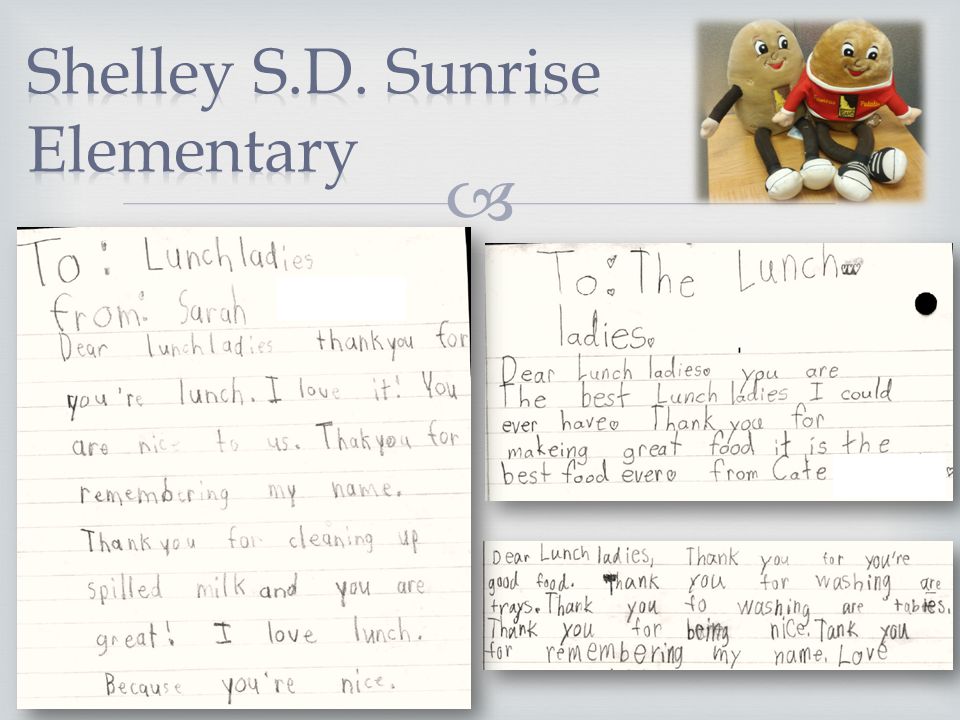 Shelley S.D. Sunrise
Elementary
To: Lunch ladies
from: Sarah
Dear lunch ladies thankyou for
you're lunch. I love it! You
are nice to us. Thakyou for
remembering my name.
Thankyou for cleaning up
spilled milk and you are
great! I love lunch.
Because you're nice.
To: The Lunch
ladies.
Dear Lunch ladies. you are
The best Lunch ladies I could
ever have. Thank you for
makeing great food it is the
best food ever. from Cate
Dear Lunch ladies, Thank you for you're
good food. Thank you for washing are
trays. Thank you to washing are tables.
Thank you for being nice. Tank you
for remembering my name. Love